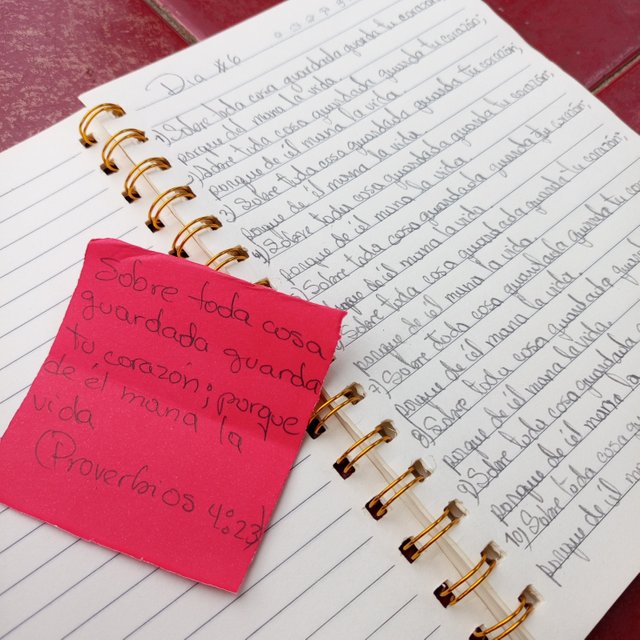 Dia #6
1) Sobre toda cosa guardada guarda tu corazón;
porque de él mana la vida.
2) Sobre toda cosa guardada guarda tu corazón;
porque de él mana la vida.
3) Sobre toda cosa guardada guarda tu corazón;
porque de él mana la vida.
4) Sobre toda cosa guardada guarda tu corazón;
porque de él mana la vida.
Sobre toda cosa guardada guarda tu corazón;
porque de él mana la vida.
Sobre toda cosa guardada guarda tu
porque de él mana la vida.
7) Sobre toda cosa guardada guarda
porque de él mana la vida.
8) Sobre toda cosa guardada
porque de él mana la vida.
9) Sobre toda cosa guardada
porque de él mana la
10) Sobre toda cosa
porque de él
Sobre toda cosa
guardada guarda
tu corazón; porque
de él mana la
vida
(Proverbios 4:23)